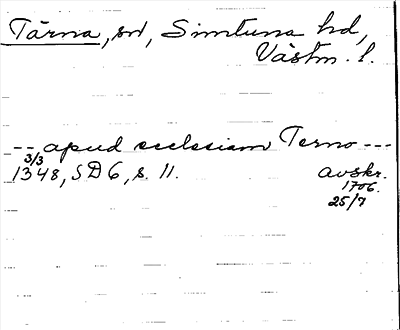 Tärna, sn, Simtuna hd,
Västm. l.
-- apud ecclesiam Terno ---
3/3
1348, SD 6, s. 11. avskr.
1706.
25/7